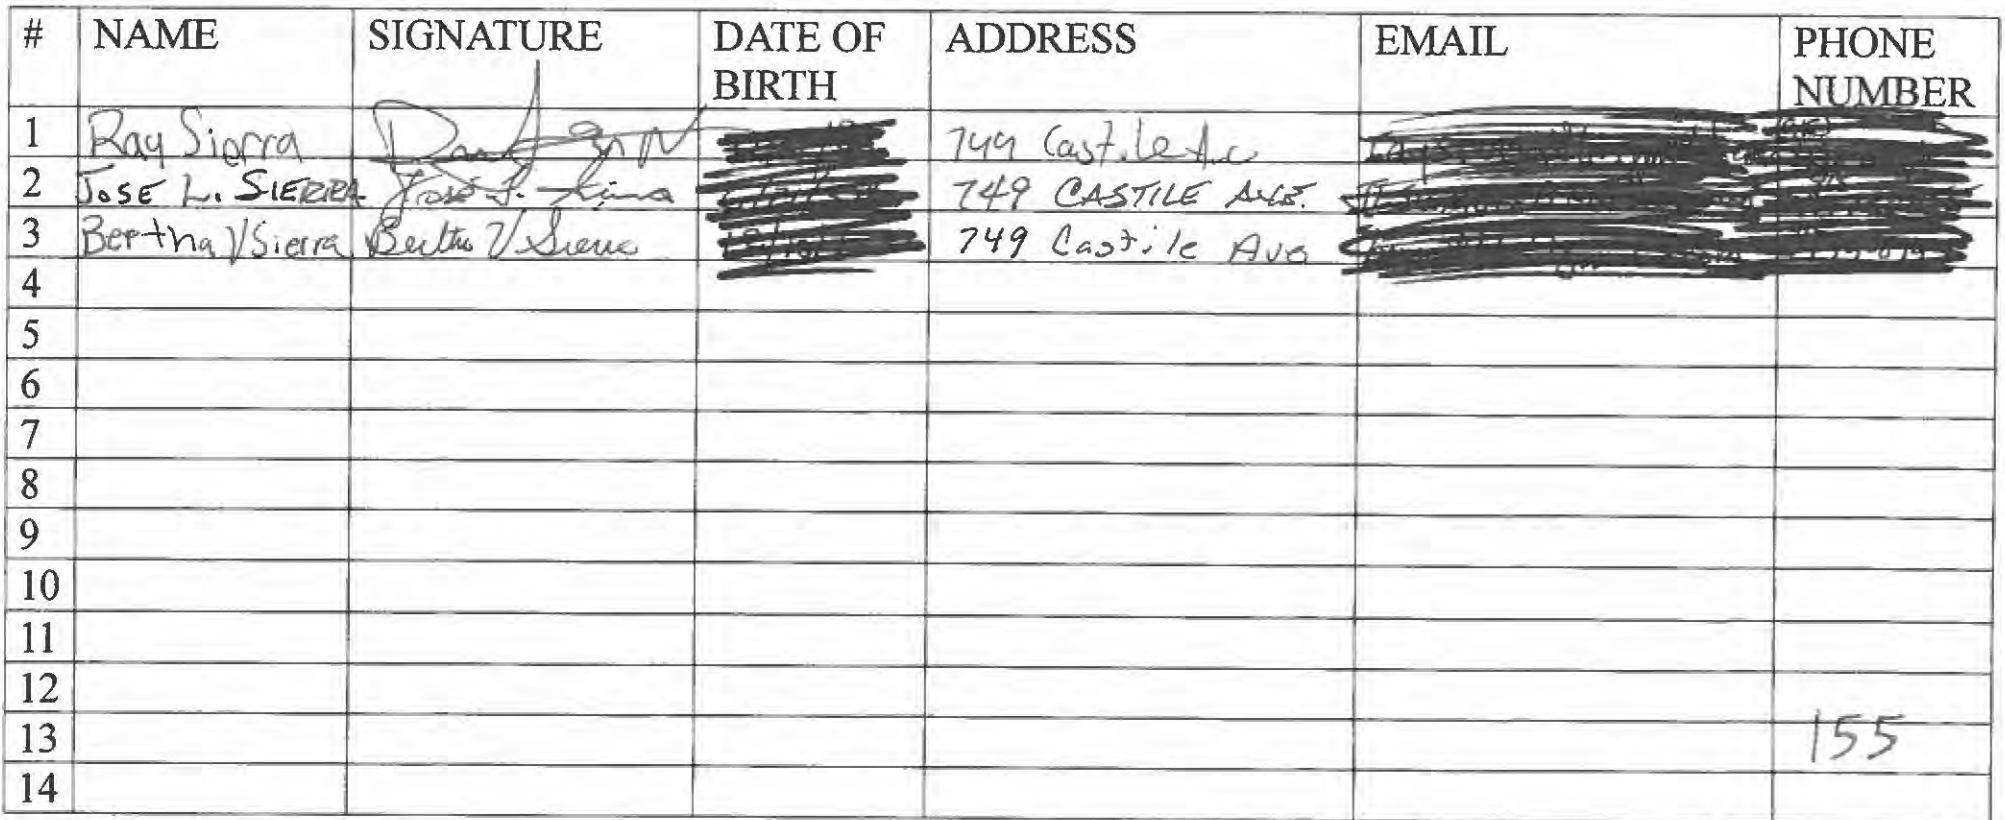 # NAME SIGNATURE DATE OF BIRTH ADDRESS EMAIL PHONE NUMBER
1 Ray Sierra 749 Castile
2 JOSE L. SIERRA 749 CASTILE AVE.
3 Bertha V Sierra Bertha V Sierra 749 Castile Ave
4
5
6
7
8
9
10
11
12
13 155
14